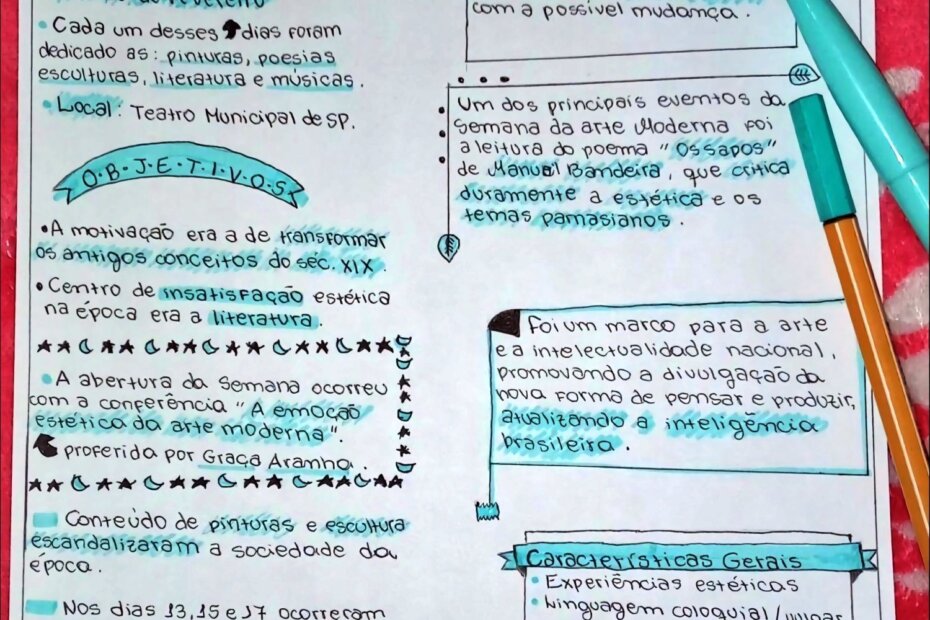 de Fevereiro
Cada um desses dias foram
dedicado as: pinturas, poesias
esculturas, literatura e músicas.
Local: Teatro Municipal de SP.
O.B.J.E.T.I.V.O.S
A motivação era a de transformar
os antigos conceitos do séc. XIX.
Centro de insatisfação estética
na época era a literatura.
A abertura da Semana ocorreu
com a conferência "A emoção
estética da arte moderna".
proferida por Graça Aranha.
Conteúdo de pinturas e escultura
escandalizaram a sociedade da
época.
Nos dias 13, 15 e 17 ocorreram
com a possível mudança.
Um dos principais eventos da
Semana da arte Moderna foi
a leitura do poema "Ossapos"
de Manuel Bandeira, que critica
duramente a estética e os
temas parnasianos.
Foi um marco para a arte
e a intelectualidade nacional,
promovando a divulgação da
nova forma de pensar e produzir,
atualizando a inteligência
brasileira.
Características Gerais
Experiências estéticas
Linguagem coloquial/vulgar